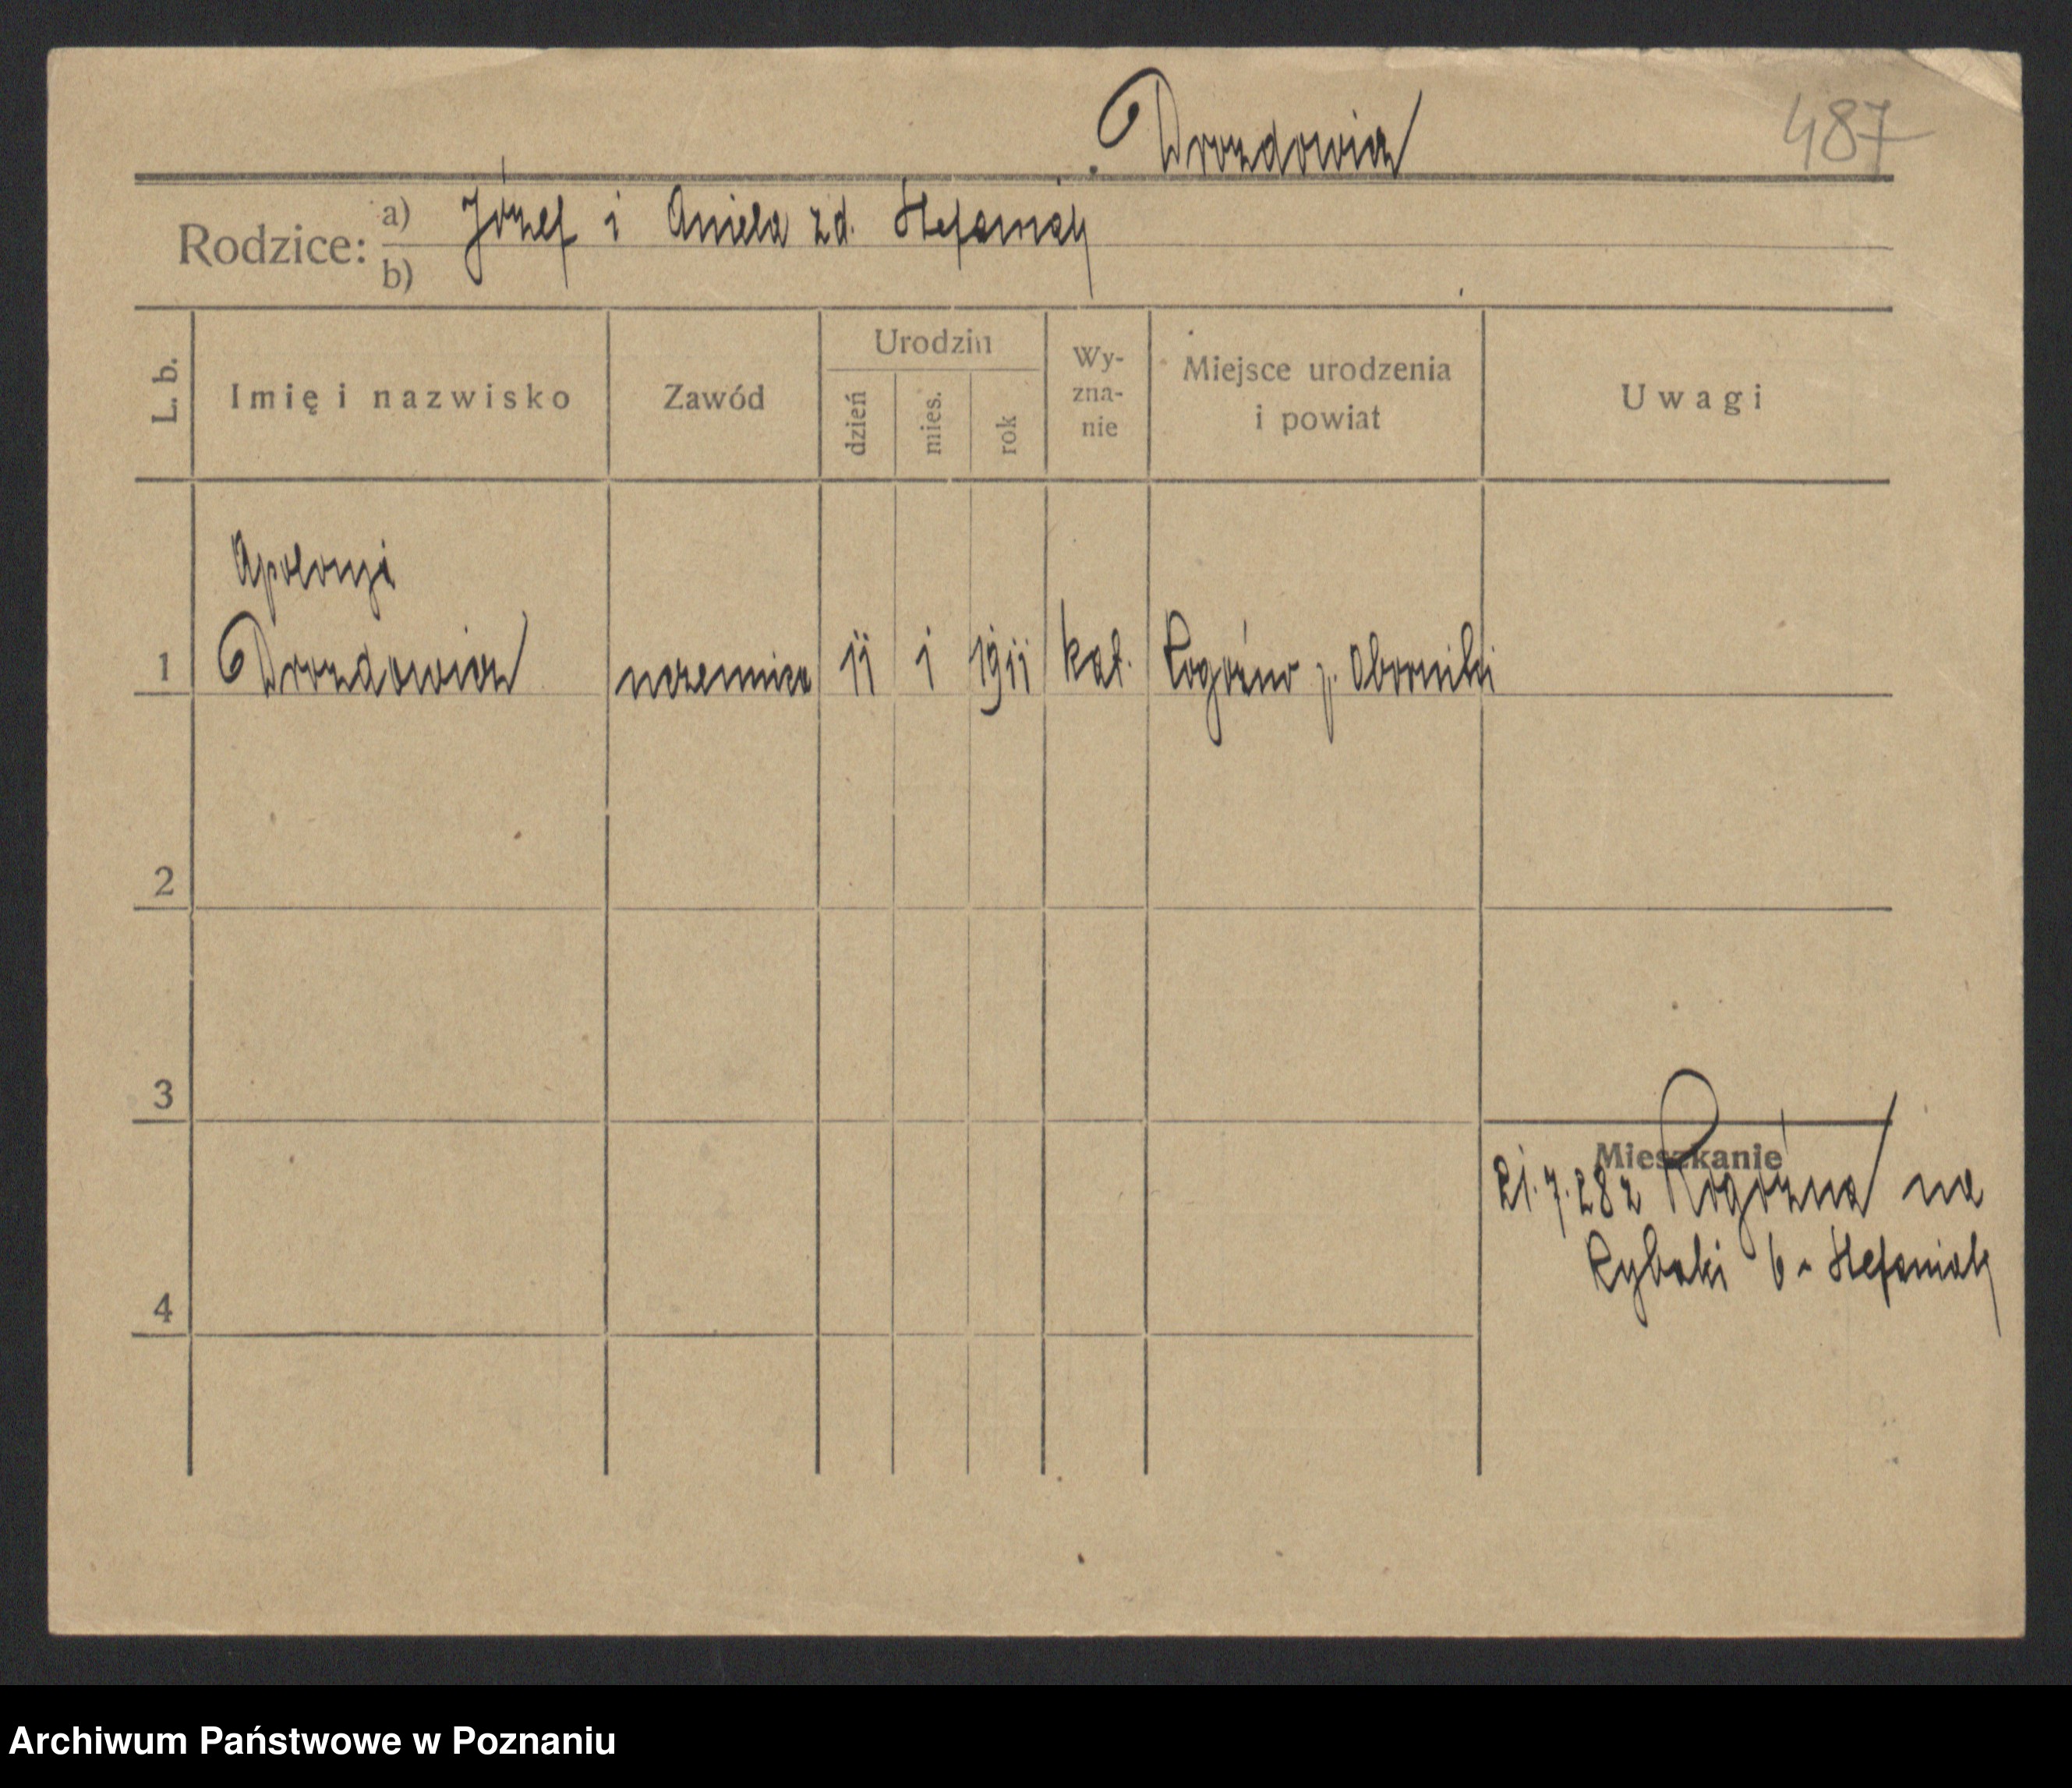 Drozdowicz
487
Rodzice: a) Józef i Aniela zd. Stefaniak
b)
L. b.
Imię i nazwisko
Zawód
Urodzin
dzień
mies.
rok
Wy-
zna-
nie
Miejsce urodzenia
i powiat
Uwagi
Apolonja
1 Drozdowicz uczennica 11 1 1911 kat. Rogoźno p. Oborniki
2
3
Mieszkanie
21.7.28 z Rogoźna na
Rybaki 6 - Stefaniak
4
Archiwum Państwowe w Poznaniu